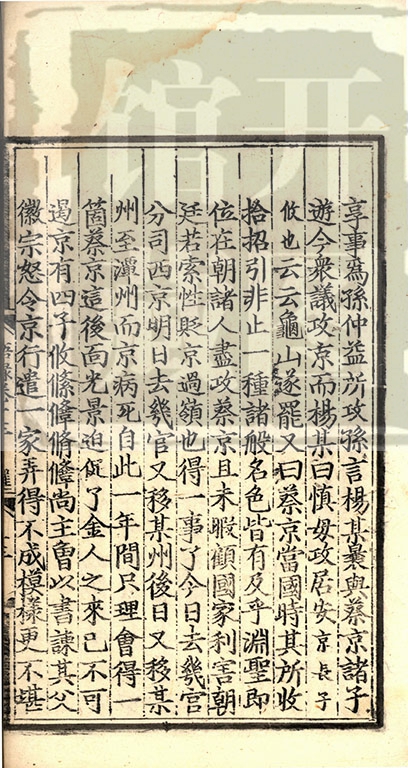 享事為孫仲益所攻孫言楊某曩與蔡京諸子
遊今衆議攻京而楊某曰慎毋攻居安京長子
攸也云云龜山遂罷又曰蔡京當國時其所收
拾招引非止一種諸般名色皆有及乎淵聖即
位在朝諸人盡攻蔡京且未暇顧國家利害朝
廷若索性貶京過嶺也得一事了今日去幾官
分司西京明日去幾官又移某州後日又移某
州至潭州而京病死自此一年間只理會得一
箇蔡京這後面光景迫促了金人之來已不可
遏京有四子攸絛鞗脩儋尚主曾以書諫其父
徽宗怒令京行遣一家弄得不成模樣更不堪